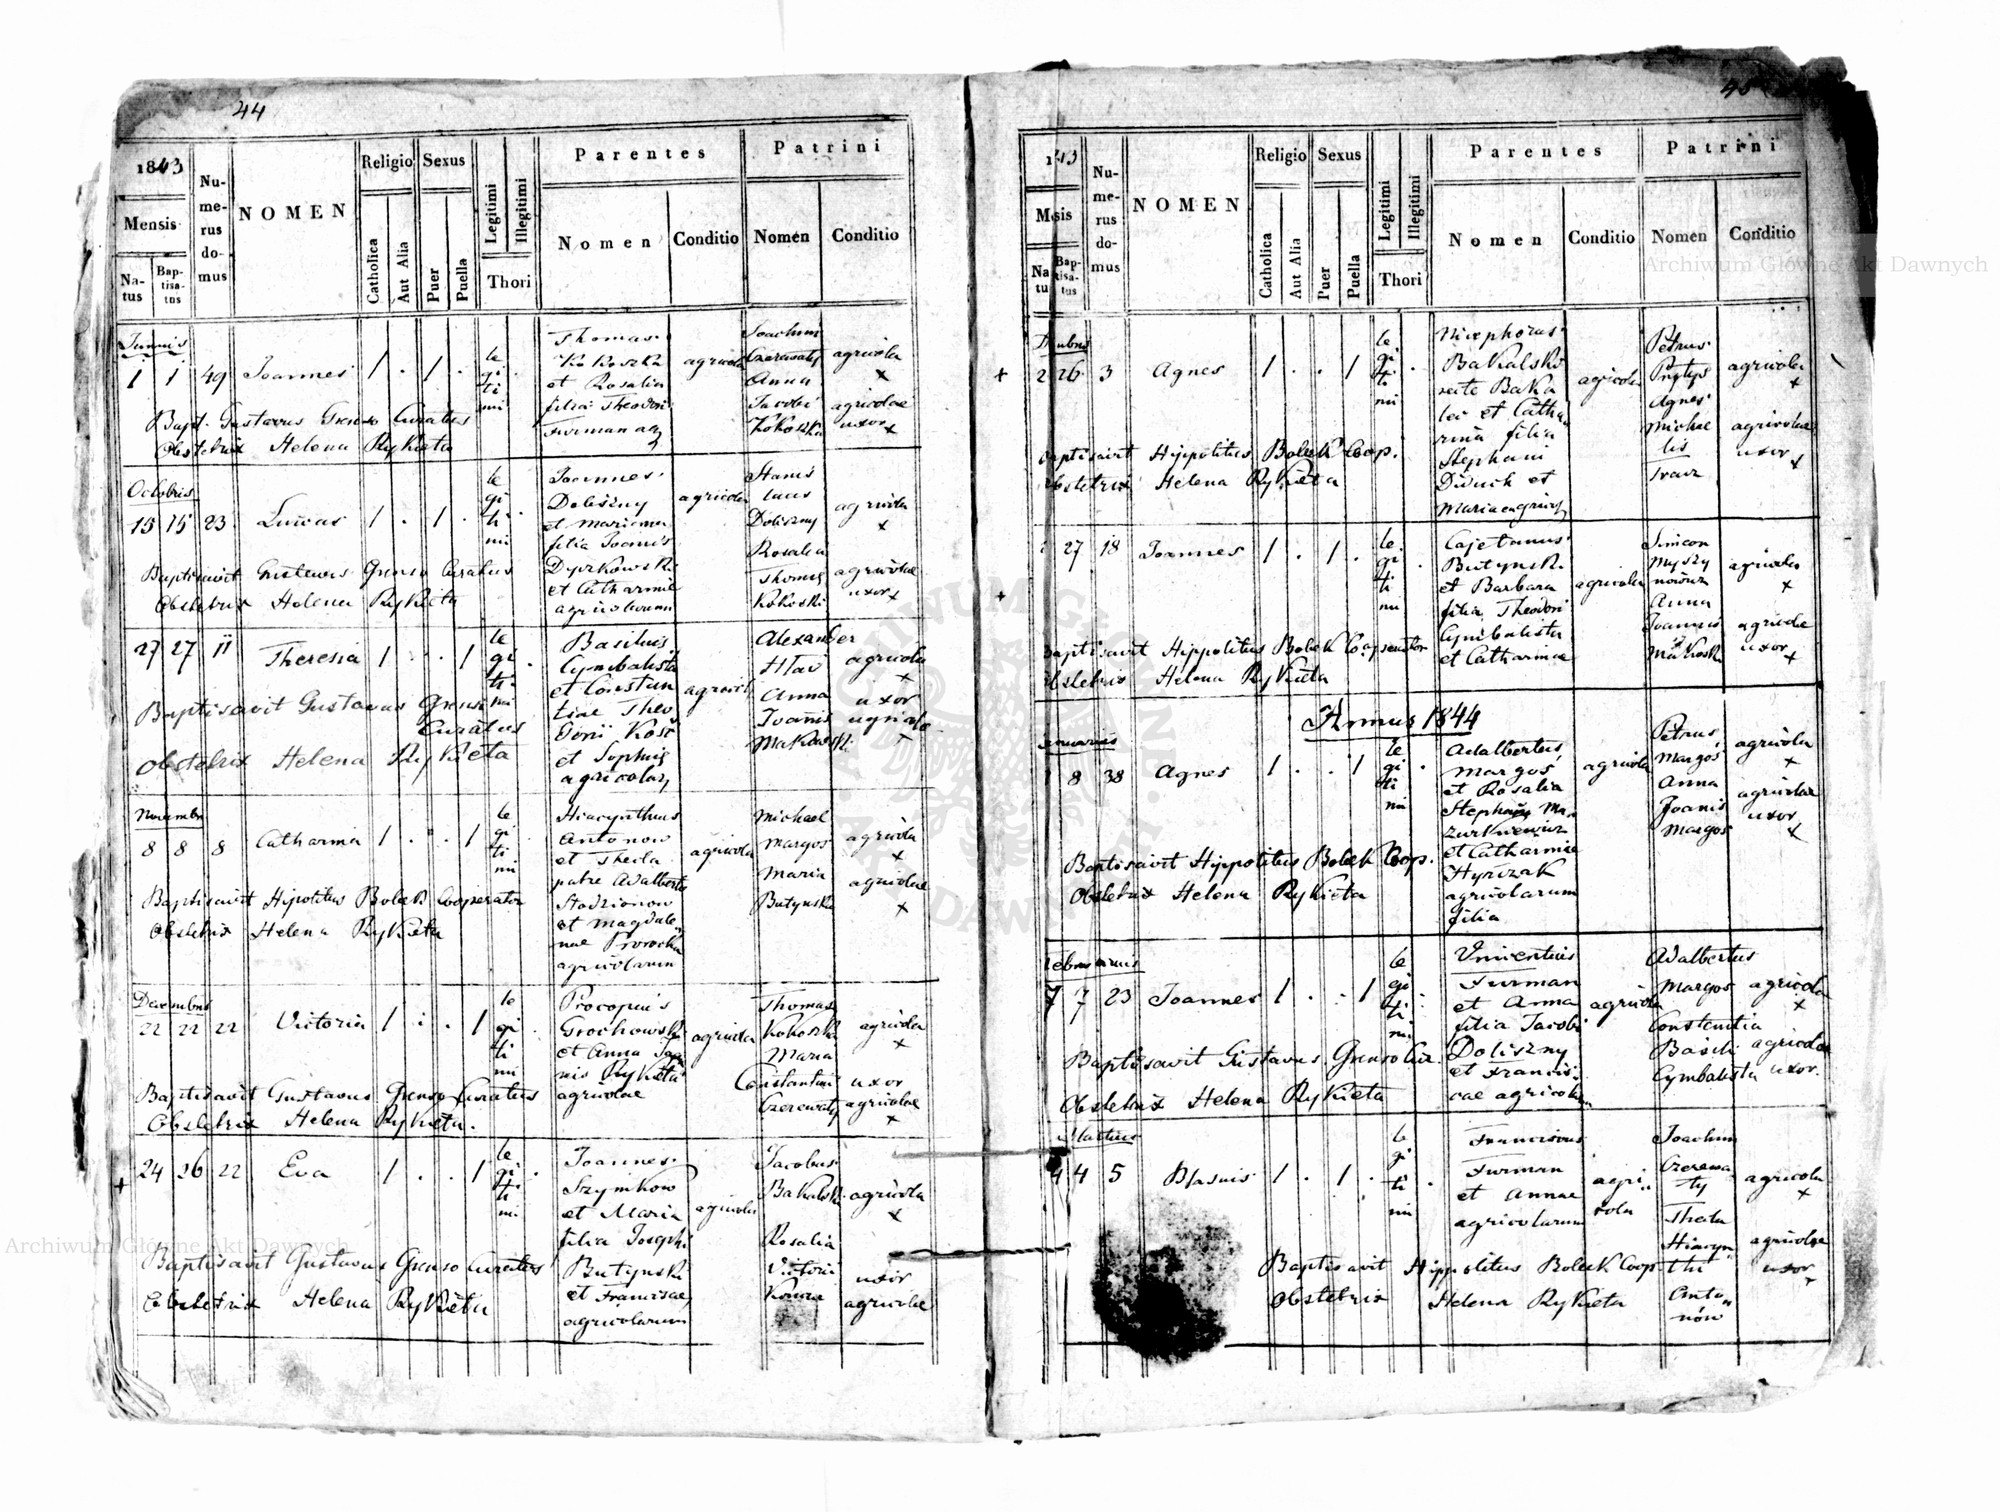 44
1843
Mensis
Na-
tus
Bap-
tisa-
tus
Nu-
me-
rus
do-
mus
NOMEN
Religio
Catholica
Aut Alia
Sexus
Puer
Puella
Legitimi
Illegitimi
Thori
Parentes
Nomen
Conditio
Patrini
Nomen
Conditio
1 1 49 Joannes 1 . 1 .
le
gi
ti
mi
Thomas
Kokoszka
et Rosalia
filia Theodori
agricola
Joachim
Czerewaty
Anna
Jacobi
Kokoszka
agricola
x
agricolae
uxor x
Bapt. Gustavus Grenso Curatus
Obstetrix Helena Rykieta
Octobris
15 15 23 Lucas 1 . 1 .
le
gi
ti
mi
Joannes
Doliszny
et Marianna
filia Joannis
et Catharinae
agricolarum
agricola
Stanis
laus
Doliszny
Rosalia
Thomae
Kokoski
agricola
x
agricolae
uxor x
Baptisavit Gustavus Grenso Curatus
Obstetrix Helena Rykieta
27 27 11 Theresia 1 . . 1
le
gi
ti
mi
Basilius
Cymbalista
et Constan
tiae Theo
dori
et Sophiae
agricola
Alexander
Anna
Joanis
Makowski
agricola
x
uxor
agricolae
x
Baptisavit Gustavus Grenso
Curatus
Obstetrix Helena Rykieta
Novembris
8 8 8 Catharina 1 . . 1
le
gi
ti
mi
Hiacynthus
Antonow
et Thecla
patre Adalberto
et Magdale
nae
agricolarum
agricola
Michael
Margos
Maria
Butynska
agricola
x
agricolae
x
Baptisavit Hipolitus Bolek Cooperator
Obstetrix Helena Rykieta
Decembris
22 22 22 Victoria 1 . . 1
le
gi
ti
mi
Procopius
Grochowski
et Anna Joan
nis Rykieta
agricolae
agricola
Thomas
Kokoszka
Maria
Constantini
Czerewaty
agricola
x
uxor
agricolae
x
Baptisavit Gustavus Grenso Curatus
Obstetrix Helena Rykieta.
+ 24 26 22 Eva 1 . . 1
le
gi
ti
mi
Joannes
Szymkow
et Maria
filia Josephi
Butynski
et Franciscae
agricolarum
agricola
Jacobus
Bakalski
Rosalia
Victorii
agricola
x
uxor
agricolae
Baptisavit Gustavus Grenso Curatus
Obstetrix Helena Rykieta
45
Nu-
me-
rus
do-
mus
NOMEN
Religio
Catholica
Aut Alia
Sexus
Puer
Puella
Legitimi
Illegitimi
Thori
Parentes
Nomen
Conditio
Patrini
Nomen
Conditio
+ 26 3 Agnes 1 . . 1
le
gi
ti
mi
Nicephorus
Bakalski
recte Baka
lec et Catha
rina filia
Stephani
Diduch et
agricola
Petrus
Agnes
Michae
lis
agricola
x
agricolae
uxor x
Baptisavit Hippolitus Bolek Coop.
Obstetrix Helena Rykieta
+ 27 18 Joannes 1 . 1 .
le
gi
ti
mi
Cajetanus
Butynski
et Barbara
filia Theodori
Cymbalista
et Catharinae
agricola
Simeon
Anna
Joannis
Makoski
agricola
x
agricolae
uxor x
Baptisavit Hippolitus Bolek Cooperator
Obstetrix Helena Rykieta
Annus 1844
Januarius
8 38 Agnes 1 . . 1
le
gi
ti
mi
Adalbertus
Margos
et Rosalia
Stephani Ma
zurkiewicz
et Catharinae
Hyrczak
agricolarum
filia
agricola
Petrus
Margos
Anna
Joanis
Margos
agricola
x
agricolae
uxor
x
Baptisavit Hyppolitus Bolek Coop.
Obstetrix Helena Rykieta
Februarius
7 7 23 Joannes 1 . . 1
le
gi
ti
mi
Vincentius
Furman
et Anna
filia Jacobi
Doliszny
et Francis
cae agricola
agricola
Adalbertus
Margos
Constantia
Basili
Cymbalista
agricola
x
agricolae
uxor.
Baptisavit Gustavus Grenso Cur.
Obstetrix Helena Rykieta
Martius
4 4 5 Blasius 1 . 1 .
le
gi
ti
mi
Franciscus
Furman
et Annae
agricolarum
agri
cola
Joachim
Czerewa
ty
Thecla
Hiacyn
thi
Anto
nów
agricola
x
agricolae
uxor
Baptisavit Hippolitus Bolek Coop
Obstetrix Helena Rykieta
Archiwum Główne Akt Dawnych
Archiwum Główne Akt Dawnych